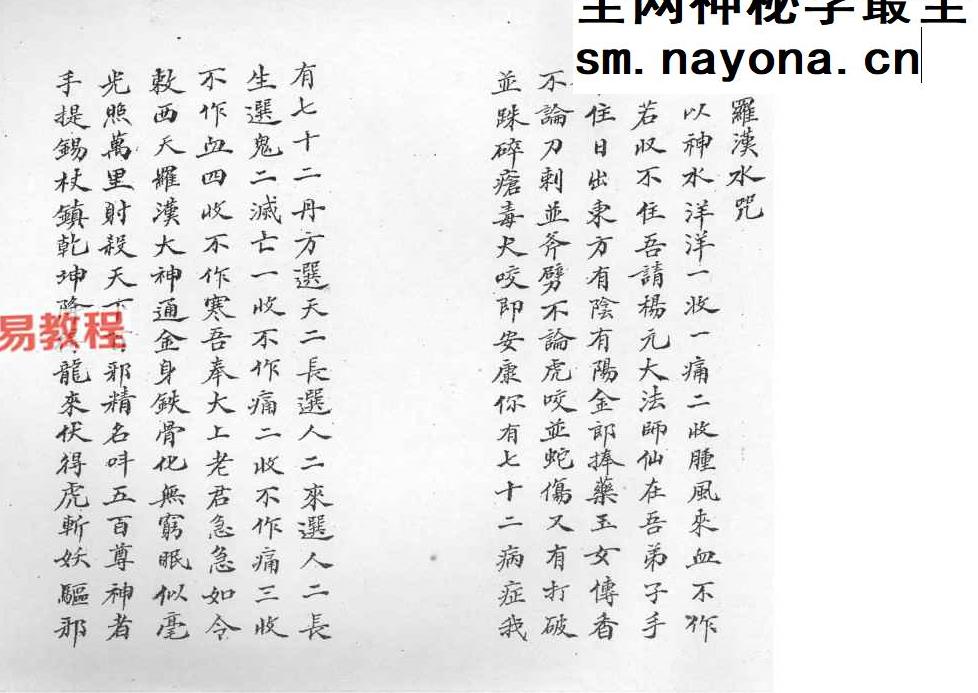 全网神秘学最全
sm.nayona.cn
羅漢水咒
以神水洋洋一收一痛二收腫風來血不作
若収不住吾請楊元大法師仙在吾弟子手
住日出東方有陰有陽金郎捧藥玉女傳香
不論刀刺並斧劈不論虎咬並蛇傷又有打破
並跌碎瘡毒犬咬即安康你有七十二病症我
有七十二丹方選天二長選人二來選人二長
生選鬼二滅亡一收不作痛二收不作痛三收
不作血四收不作寒吾奉大上老君急急如令
敕西天羅漢大神通金身鉄骨化無窮眠似毫
光照萬里射殺天下邪精名呌五百尊神者
手提錫杖鎮乾坤降龍來伏得虎斬妖驅邪
易教程